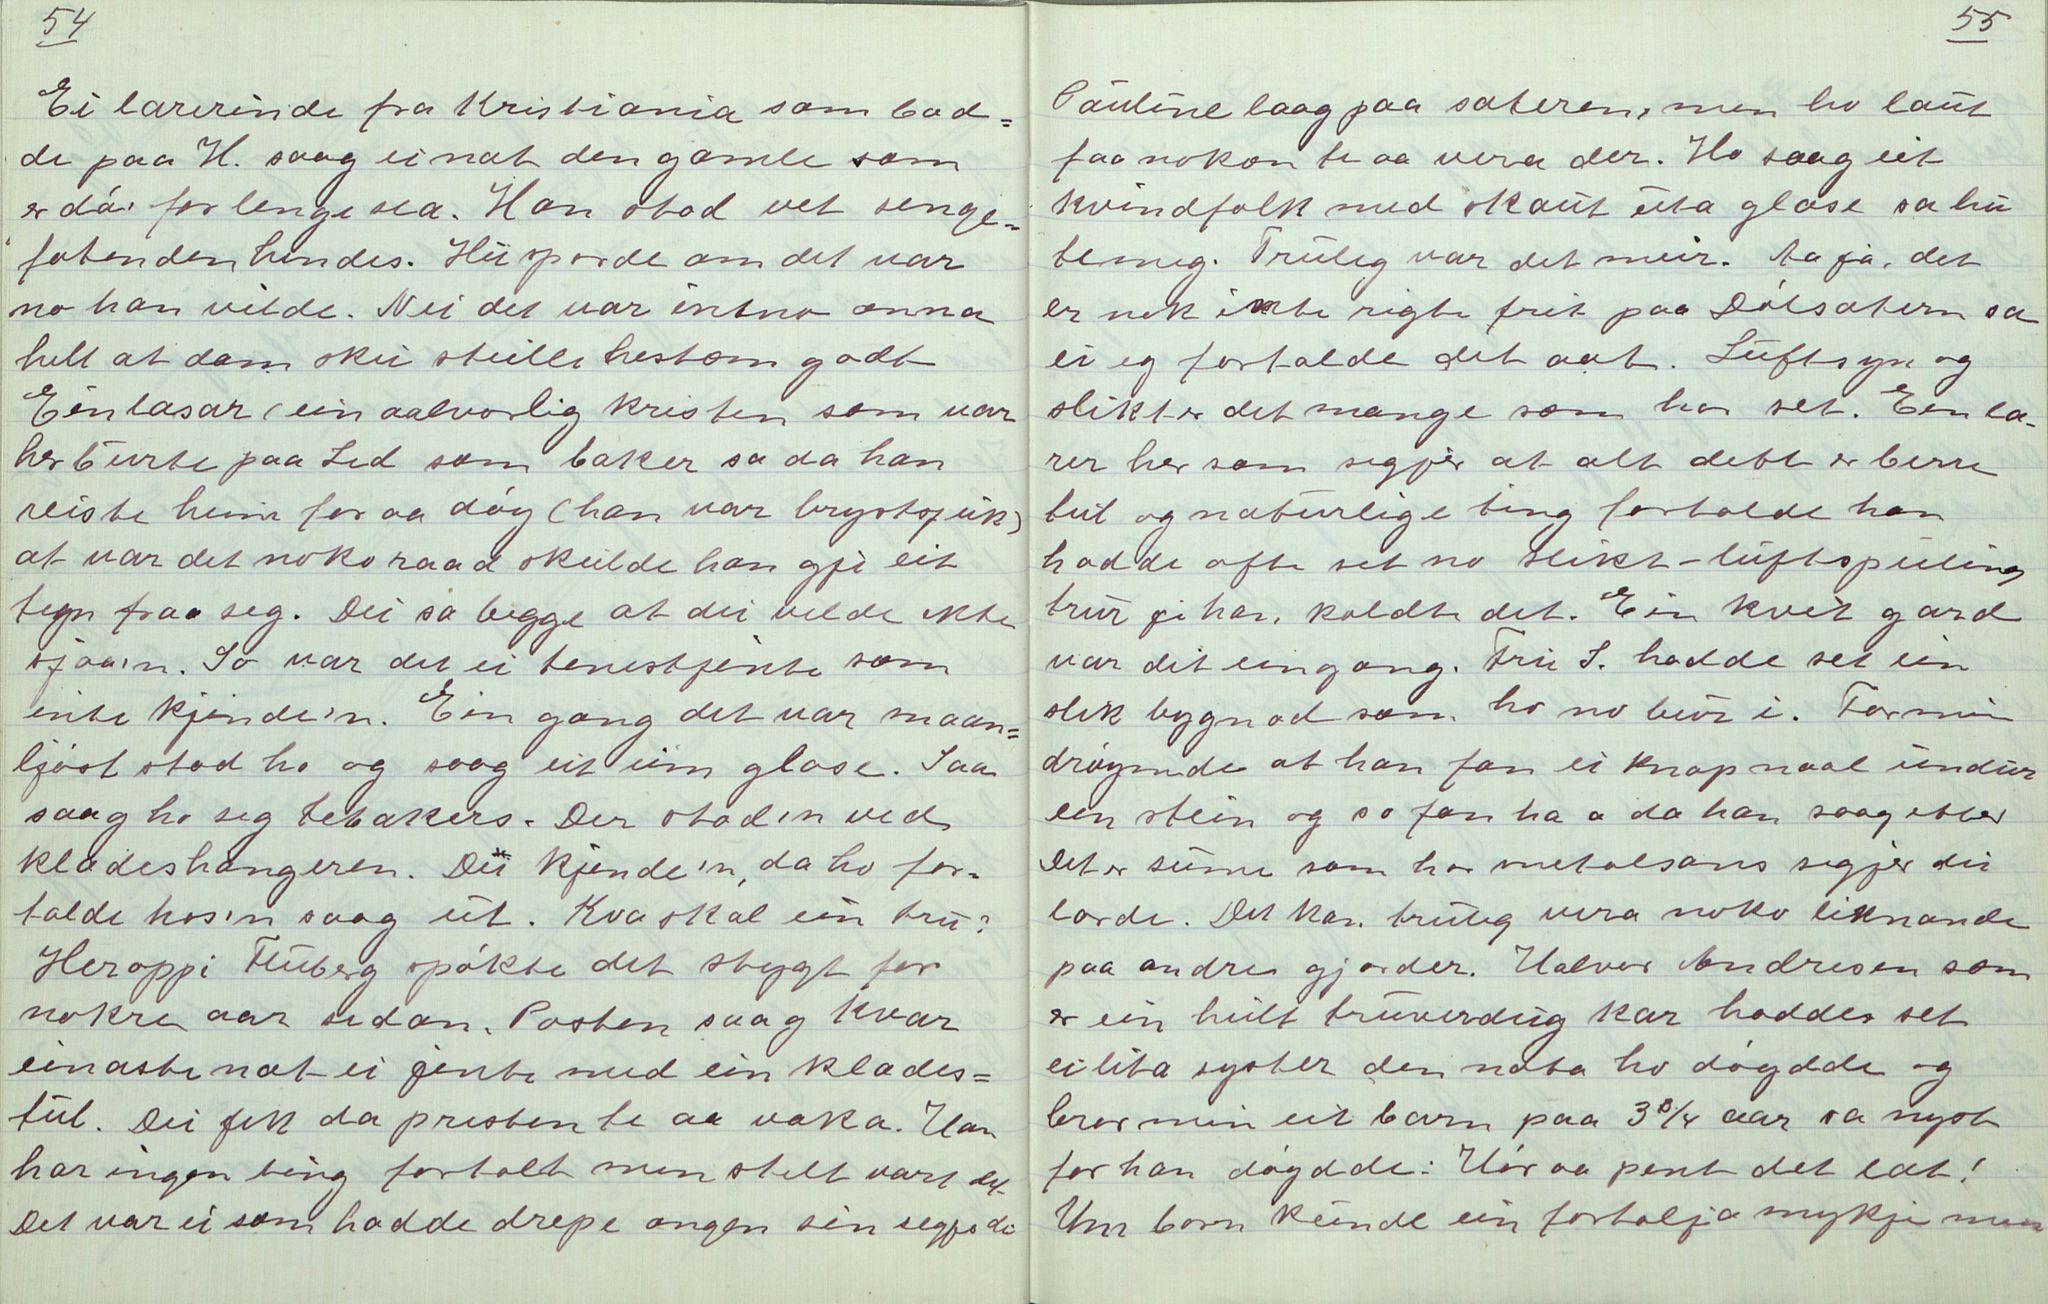 54
Ei lærerinde fra Kristiania som bod=
de paa H. saag ei nat den gamle som
er dø' for lenge sea. Han stod vet senge=
fotenden hendes. Hu sporde om det var
no han vilde. Nei det var intno anna
hell at dom sku stelle hestom godt
Ein lasar (ein aalvorlig kristen som var
her burte paa Led som baker sa da han
reiste heim for aa døy (han var brystsjuk)
at var det noko raad skulde han gje eit
tegn fraa seg. Dei sa begge at dei vilde ikke
sjaa'n. So var det ei tenestjente som
inte kjende'n. Ein gang det var maan=
ljost stod ho og saag eit uim glase. Saa
saag ho seg tebakers. Der stod'n ved
klædeshængeren. Dei kjende'n, da ho for=
talde hos'n saag ut. Kva skal ein tru?
Her oppi Fluberg spøkte det stygt for
nokre aar sedan. Posten saag kvar
einaste nat ei jente med ein klædes=
tul. Dei fek da presten te aa vaka. Han
har ingen ting fortalt men stelt vart det
Det var ei som hadde drepe ongen sin segjes de
55
Pauline laag paa sæteren, men ho laut
faa nokon te aa vera der. Ho saag eit
kvindfolk med skaut uta glase sa hu
te meg. Truleg var det meir. Aa ja, det
er nok inkte rigte frit paa Dølsætern sa
ei eg fortalde det aat. Luftsyn og
slikt er det mange som har set. Ein læ-
rer her som segjer at alt dette er berre
tul og naturlige ting fortalde han
hadde ofte set no slikt - luftspeiling
trur je han kaldte det. Ein kvit gard
var dit eingong. Fru S. hadde set ein
slik bygnad som ho no bur i. Far min
drøymde at han fan ei knapnaal undur
ein stein og so fan ha a da han saag etter
Det er sume som har metalsans segjer dei
lærde. Det kan truleg vera noko liknande
paa andre gjærder. Halvor Andresen som
er ein heilt truverdug kar hadde set
ei lita syster den natta ho døydde og
bror min eit barn paa 3 3/4 aar sa nyst
før han døydde: Hør aa pent det læt!
Um born kunde ein fortelja mykje men